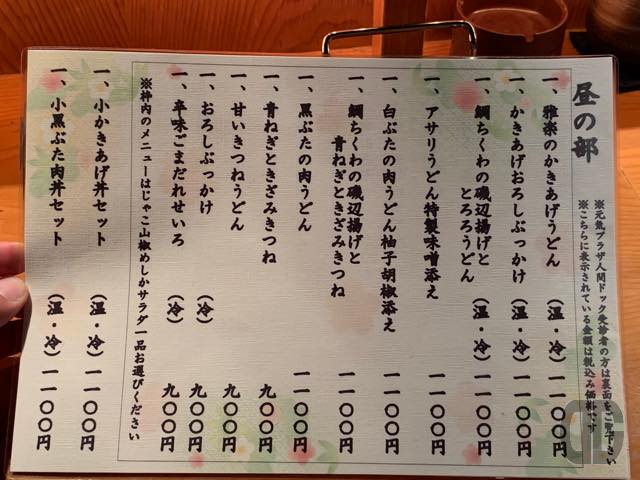 昼の部
※元氣プラザ人間ドック受診者の方は裏面をご覧下さい
※こちらに表示されている金額は税込み価格です
一、雅楽のかきあげうどん (温・冷) 一一〇〇円
一、かきあげおろしぶっかけ (温・冷) 一一〇〇円
一、鯛ちくわの磯辺揚げと
とろろうどん (温・冷) 一一〇〇円
一、アサリうどん特製味噌添え 一一〇〇円
一、白ぶたの肉うどん柚子胡椒添え 一一〇〇円
一、鯛ちくわの磯辺揚げと
青ねぎときざみきつね 一一〇〇円
一、黒ぶたの肉うどん 一一〇〇円
一、青ねぎときざみきつね 九〇〇円
一、甘いきつねうどん 九〇〇円
一、おろしぶっかけ (冷) 九〇〇円
一、辛味ごまだれせいろ (冷) 九〇〇円
※枠内のメニューはじゃこ山椒めしかサラダ一品お選びください
一、小かきあげ丼セット (温・冷) 一一〇〇円
一、小黒ぶた肉丼セット (温・冷) 一一〇〇円